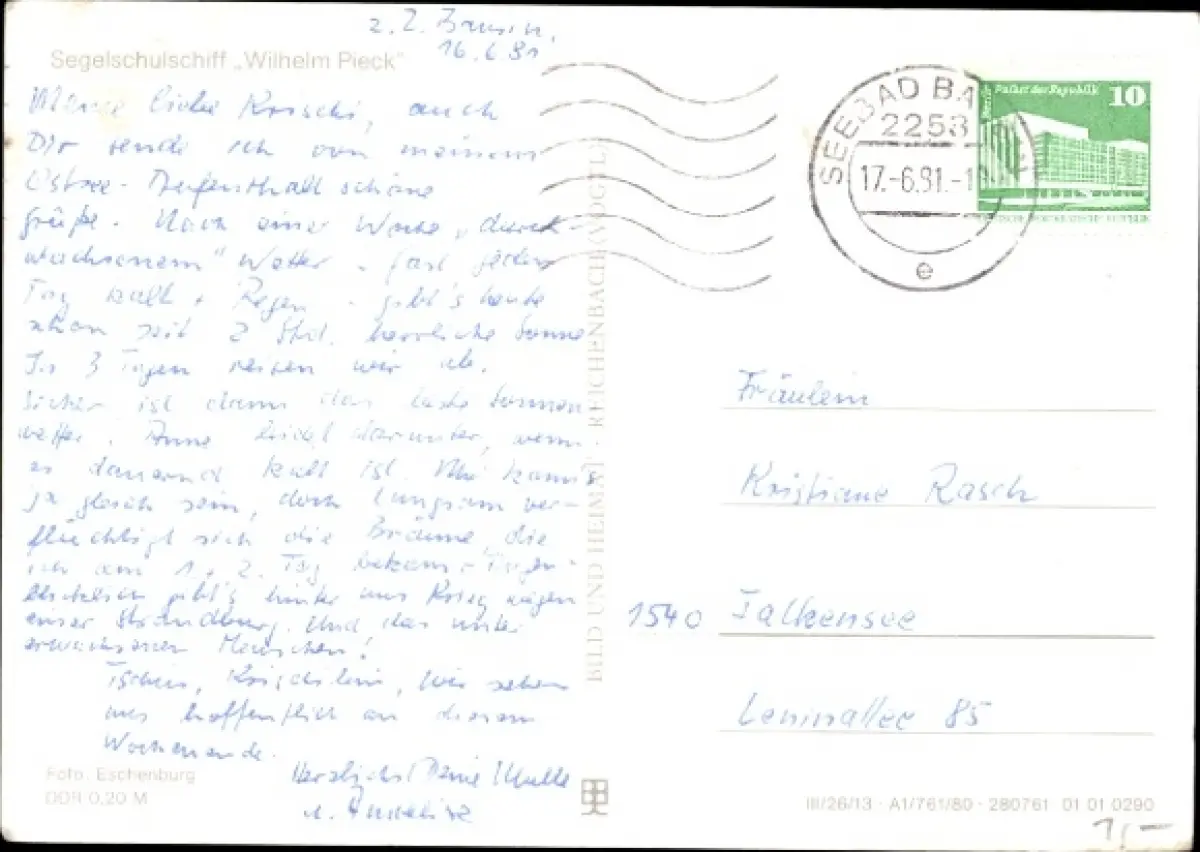 z. Z. Bansin,
16.6.81
Segelschulschiff „Wilhelm Pieck"
Meine liebe Krischi, auch
Dir sende ich von meinem
Ostsee-Aufenthalt schöne
Grüße. Nach einer Woche „durch-
wachsenem" Wetter - fast jeden
Tag kalt + Regen - gibt's heute
schon seit 2 Std. herrliche Sonne
In 3 Tagen reisen wir ab.
Sicher ist dann das beste Sonnen
wetter. Anne leidet darunter, wenn
es dauernd kalt ist. Mir kann's
ja gleich sein, doch langsam ver-
flüchtigt sich die Bräune, die
ich am 1. + 2. Tag bekam.
gibt's hinter uns Krieg wegen
einer Strandburg. Und das unter
erwachsenen Menschen!
Tschüs, Krischilein, wir sehen
uns hoffentlich an diesem
Wochenende.
Herzlichst Deine
u.
Foto: Eschenburg
DDR 0,20 M
BILD UND HEIMAT REICHENBACH (VOGTL)
SEEBAD BA
2253
17.-6.81.-1
e
Berlin Palast der Republik 10
Fräulein
Kristiane Rasch
1540 Falkensee
Leninallee 85
III/26/13 · A1/761/80 · 280761 01 01 0290
1,-